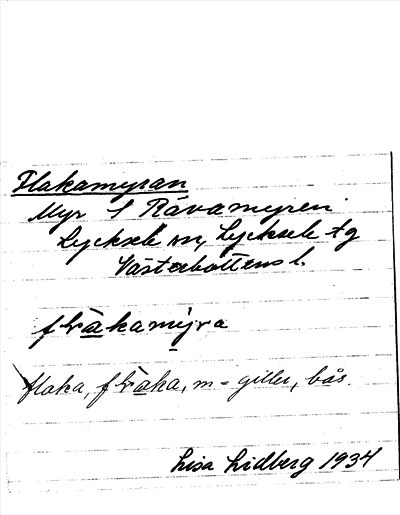 Flakamyran
Myr S Rävamyren
Lycksele sn, Lycksele tg
Västerbottens l.
flakamyra
flaka, flaka, m = giller, bås.
Lisa Lidberg 1934